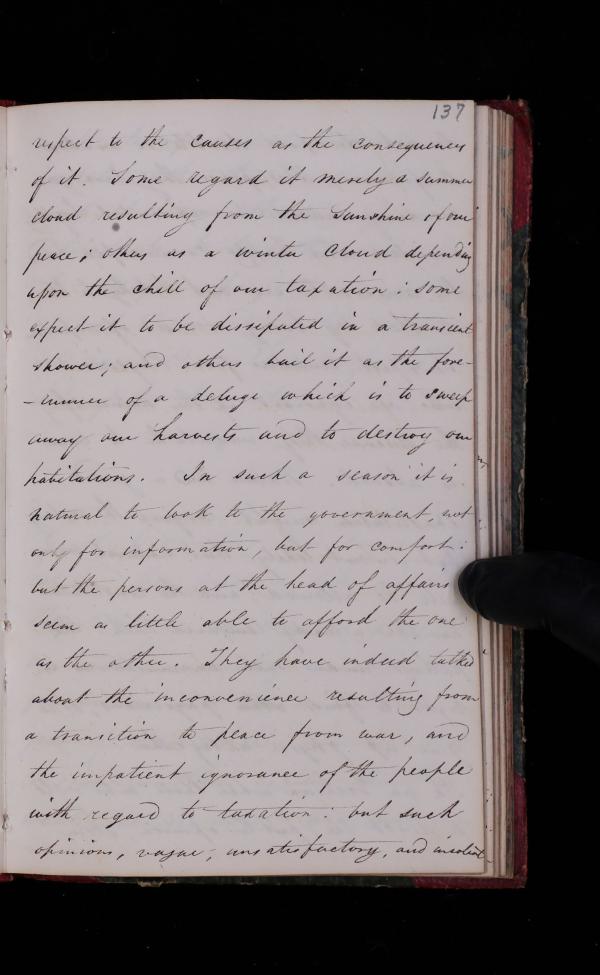 137
respect to the causes as the consequences
of it. Some regard it merely a summer
cloud resulting from the sunshine of our
peace; others as a winter cloud depending
upon the chill of our taxation: some
expect it to be dissipated in a transient
shower; and others hail it as the fore-
-runner of a deluge which is to sweep
away our harvests and to destroy our
habitations. In such a season it is
natural to look to the government, not
only for information, but for comfort:
but the persons at the head of affairs
seem as little able to afford the one
as the other. They have indeed talked
about the inconvenience resulting from
a transition to peace from war, and
the impatient ignorance of the people
with regard to taxation: but such
opinions, vague, unsatisfactory, and insolent